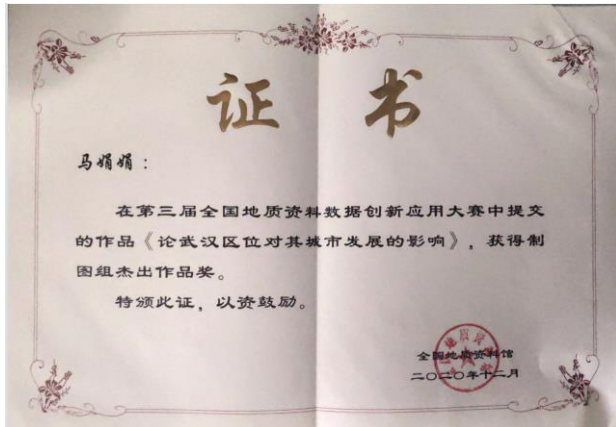 证书
马娟娟：
在第三届全国地质资料数据创新应用大赛中提交
的作品《论武汉区位对其城市发展的影响》，获得制
图组杰出作品奖。
特颁此证，以资鼓励。
全国地质资料馆
二〇二〇年十二月